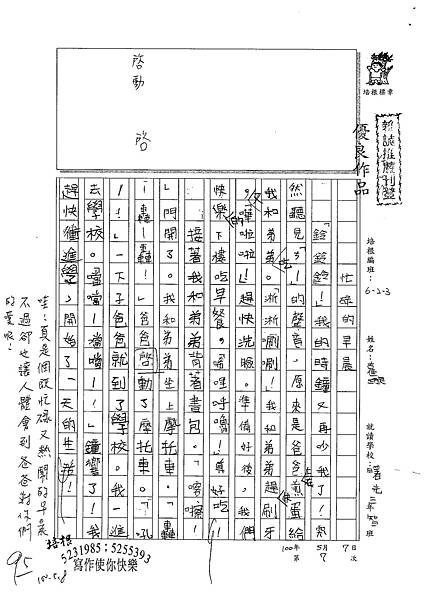 培根標章
報誌推薦刊登
優良作品
啓動
啓
培根編班：6-2-3
姓名：
就讀學校：
三年智班
100年5月7日
第7次
忙碌的早晨
「鈴鈴鈴！」我的時鐘又再吵我了！突
然聽見「ㄋ！」的聲音，原來是爸爸在煎蛋給
我和弟弟吃。「淅淅唰唰！」我和弟弟趕快刷牙
。又「嘩啦啦！」趕快洗臉。準備好後，我們
快樂的下樓吃早餐。「呼呼嚕！」真好吃！
接著我和弟弟背著書包。「喀擦！
」門開了。我和弟弟坐上摩托車。「轟
！轟！轟！」爸爸啓動了摩托車。「叭
！！」一下子爸爸就到了學校。我一進
去學校。「噹當！噹噹！」鐘響了！我
趕快衝進學，開始了一天的生活！
哇！真是個既忙碌又熱鬧的早晨
不過卻也讓人體會到爸爸對你們
的愛喔！
95
100.5.8
培根
5231985；5255393
寫作使你快樂